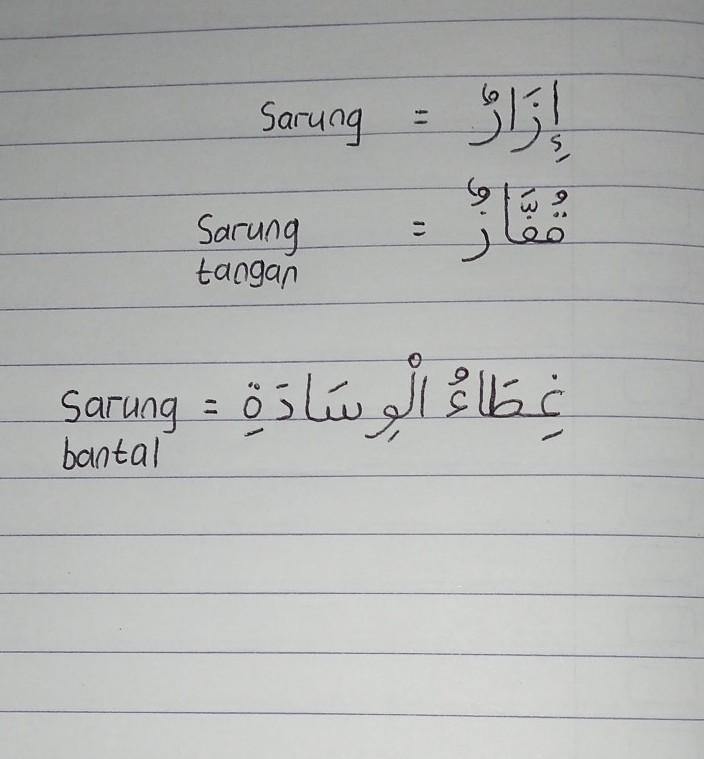 Sarung = إِزَارٌ
Sarung = قُفَّازٌ
tangan
Sarung = غِطَاءُ الْوِسَادَةِ
bantal